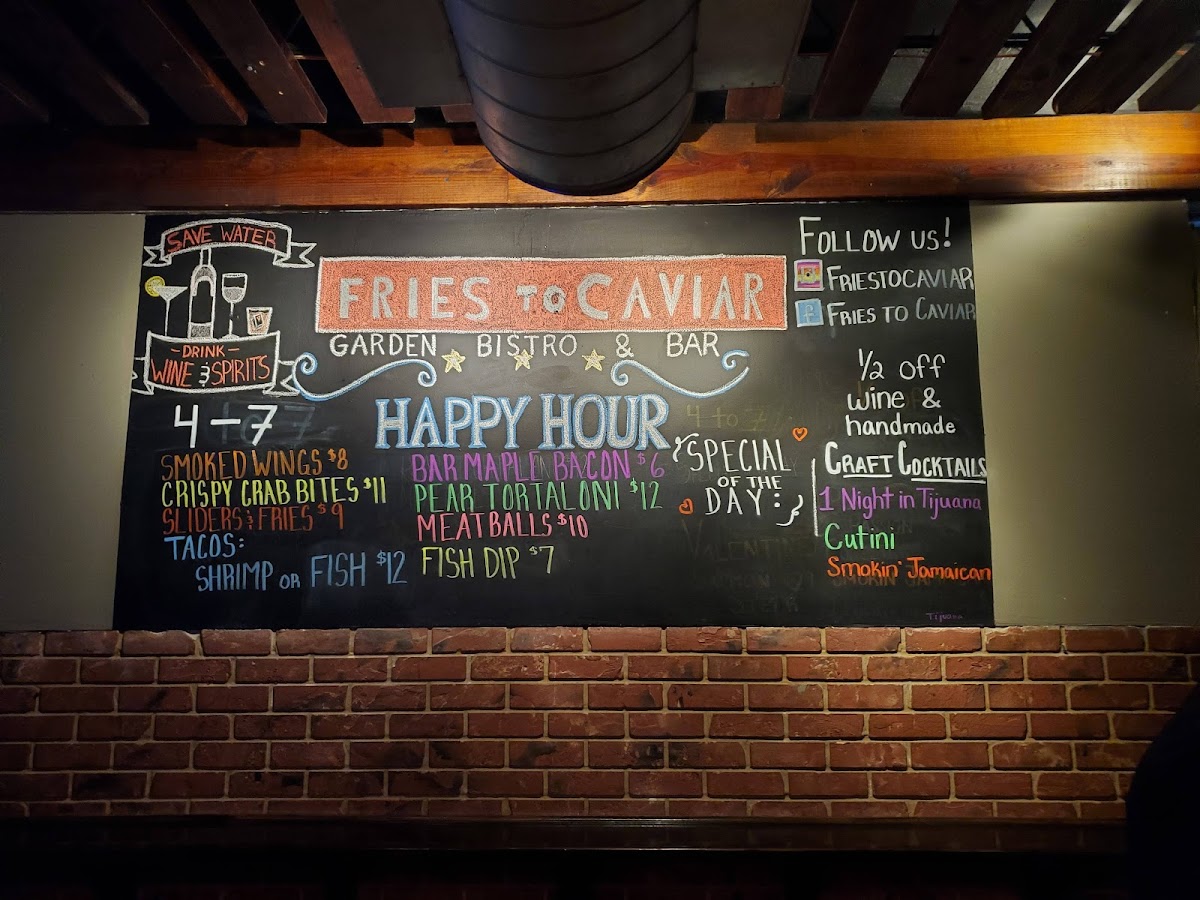 SAVE WATER
-DRINK-
WINE & SPIRITS
FRIES TO CAVIAR
GARDEN BISTRO & BAR
HAPPY HOUR
4-7
SMOKED WINGS $8
CRISPY CRAB BITES $11
SLIDERS & FRIES $9
TACOS:
SHRIMP OR FISH $12
BAR MAPLE BACON $6
PEAR TORTALONI $12
MEATBALLS $10
FISH DIP $7
4 to 7
SPECIAL
OF THE
DAY:
FOLLOW US!
FRIESTOCAVIAR
f FRIES TO CAVIAR
1/2 off
wine &
handmade
CRAFT COCKTAILS
1 Night in Tijuana
Cutini
Smokin' Jamaican
Tijuana